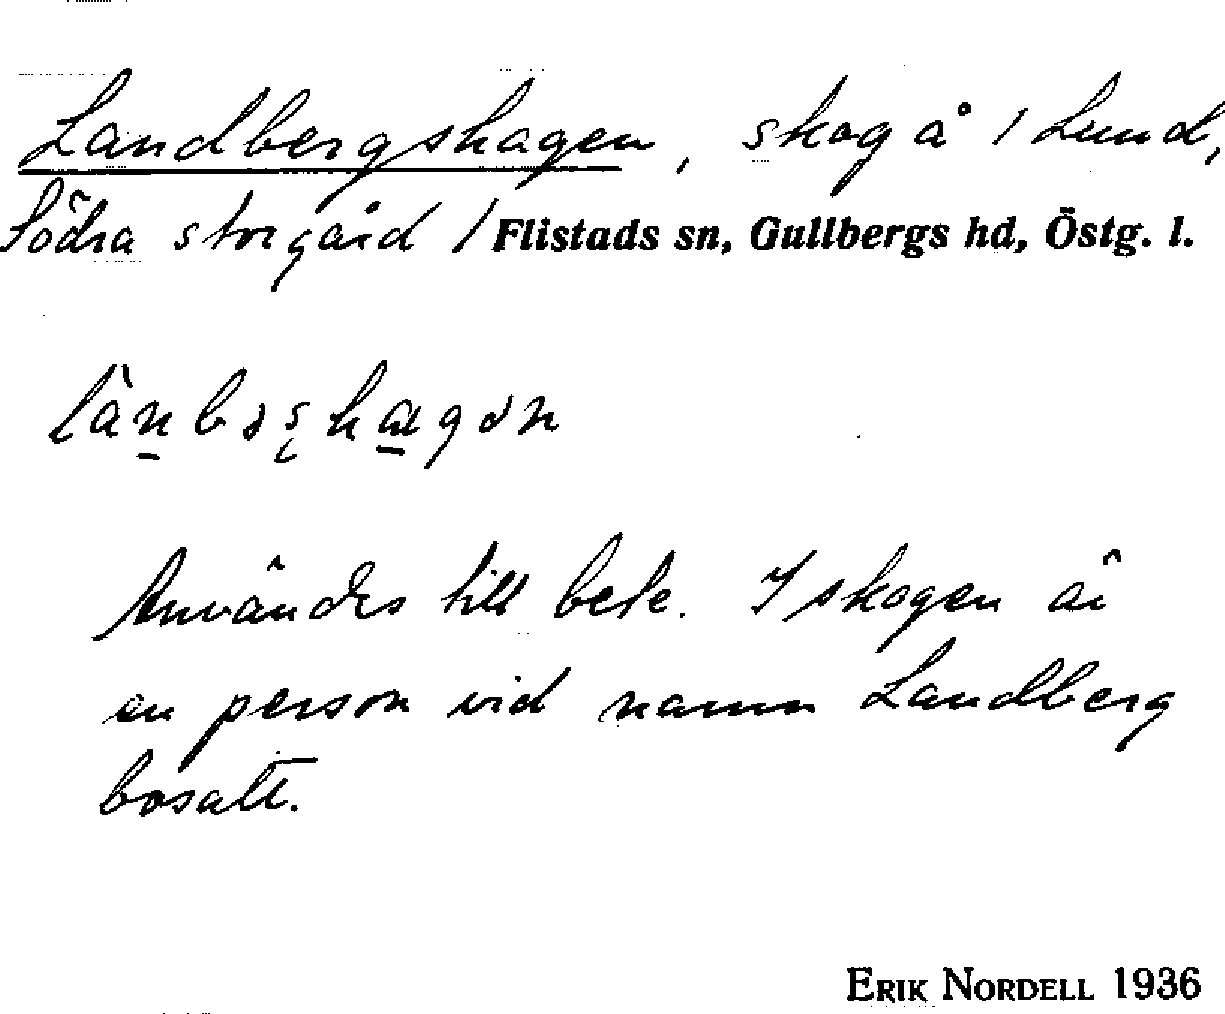 Landbergshagen, skog å / Lund,
Södra storgård / Flistads sn, Gullbergs hd, Östg. l.
Användes till bete. I skogen är
en person vid namn Landberg
bosatt.
ERIK NORDELL 1936